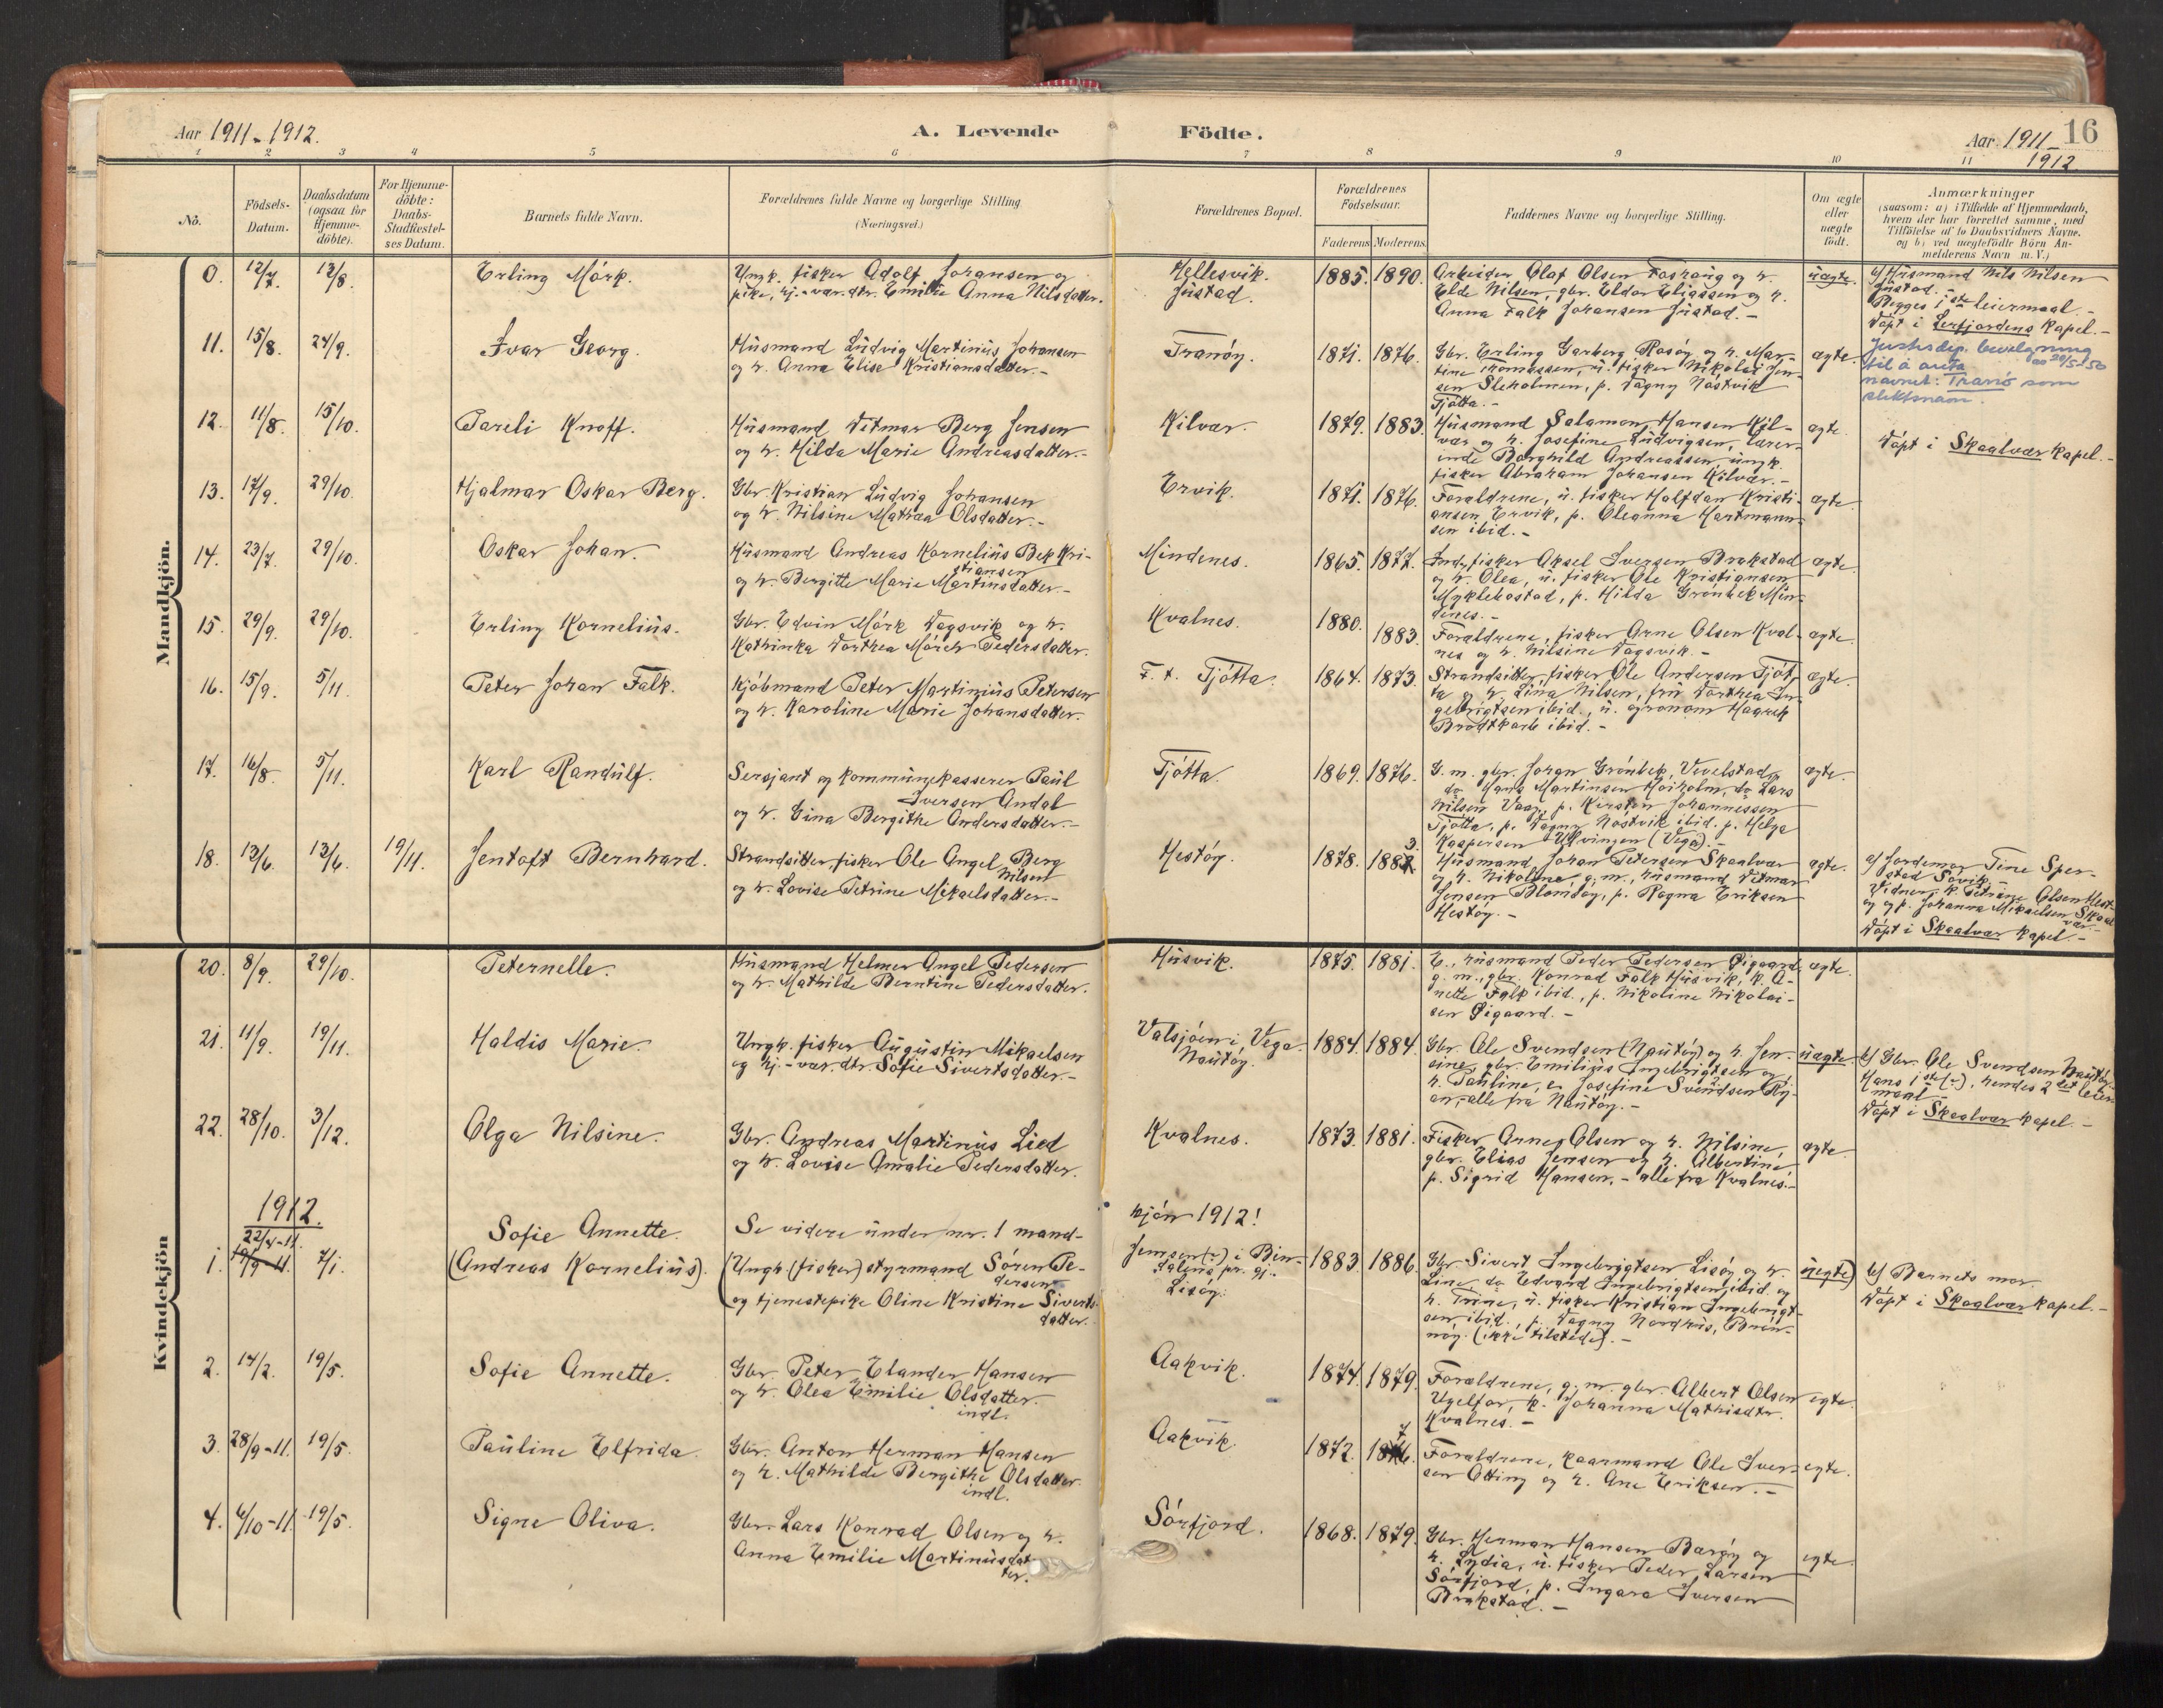 Aar 1911-1912.
A. Levende
Födte.
Aar 1911-
1912.
16
1 2 3 4 5 6 7 8 9 10 11
No.
Födsels-
Datum.
Daabsdatum
(ogsaa for
Hjemme-
döbte).
For Hjemme-
döbte:
Daabs-
Stadfæstel-
ses Datum.
Barnets fulde Navn.
Forældrenes fulde Navne og borgerlige Stilling
(Næringsvei.)
Forældrenes Bopæl.
Forældrenes
Födselsaar.
Faderens Moderens
Faddernes Navne og borgerlige Stilling.
Om ægte
eller
uægte
födt.
Anmærkninger
(saasom: a) i Tilfælde af Hjemmedaab,
hvem der har forrettet samme, med
Tilföielse af to Daabsvidners Navne.
og b) ved uægtefödte Börn An-
melderens Navn m. V.)
Mandkjön.
0. 12/7. 13/8. Erling Mörk.
Ungk. fisker Adolf Johansen og
pike, hj.-vær. dtr. Emilie Anna Nilsdatter.
Hellesvik.
Jüstad.
1885. 1890.
Arbeider Olaf Olsen Foshaug og h.
Elde Nilsen, gbr. Eldor Eliassen og h.
Anna Falk Johansen Jüstad. -
üægte.
b/ Hüsmand Nils Nilsen
Jüstad. -
Begges 1ste leiermaal. -
Döpt i Leirfjordens kapel. -
11. 15/8. 24/9. Ivar Georg.
Hüsmand Lüdvig Martinüs Johansen
og h. Anna Elise Kristiansdatter. -
Tranöy.
1871. 1876.
Gbr. Erling Garberg Rosöy og h. Mar-
tine Thomassen, ü. fisker Nikolai Jen-
sen Sleholmen, p. Dagny Nöstvik
Tjötta. -
ægte.
Justisdep. bevilgning
av 20/5-50
til å anta
navnet: Tranö som
slektsnavn.
12. 11/8. 15/10. Pareli Knoff.
Hüsmand Ditmar Berg Jensen
og h. Hilda Marie Andreasdatter. -
Kilvær.
1879. 1883.
Hüsmand Salamon Hansen Kil-
vær og h. Josefine Lüdvigsen, lærer-
inde Borghild Andreassen üngk.
fisker Abraham Johansen Kilvær. -
ægte.
Döpt i Skaalvær kapel. -
13. 17/9. 29/10. Hjalmar Oskar Berg.
Gbr. Kristian Lüdvig Johansen
og h. Nilsine Mathea Olsdatter. -
Ervik.
1871. 1876.
Forældrene, ü. fisker Halfdan Kristi-
ansen Ervik, p. Oleanna Hartmann-
sen ibid. -
ægte.
14. 23/7. 29/10. Oskar Johan.
Hüsmand Andreas Kornelius Bek Kri-
stiansen
og h. Bergitte Marie Martinsdatter. -
Mindenes.
1865. 1877.
Ind. fisker Aksel Iversen Brakstad
og h. Olea, ü. fisker Ole Kristiansen
Myklebostad, p. Hilda Grönbek Min-
denes. -
ægte.
15. 29/9. 29/10. Erling Kornelius.
Gbr. Edvin Mörk Dagsvik og h.
Kathinka Dorthea Mörch Pedersdatter.
Kvalnes.
1880.
1883.
Forældrene, fisker Arne Olsen Kval-
nes og h. Nilsine Dagsvik. -
ægte.
16. 15/9. 5/11. Peter Johan Falk.
Kjöbmand Peter Martinius Petersen
og h. Karoline Marie Johansdatter.
F. t. Tjötta.
1864. 1873.
Strandsitter, fisker Ole Andersen Tjöt-
ta og h. Lina Nilsen, frü Dorthea In-
gebrigtsen ibid., ü. agronom Hagrik
Brodtkorb ibid. -
ægte.
17. 16/8. 5/11. Karl Randülf.
Sersjant og kommünekasserer Paül
Iversen Andal
og h. Gina Bergithe Andersdatter. -
Tjötta.
1869. 1876.
G. m. gbr. Johan Grönbek, Vevelstad,
do Hans Martinsen Höiholm, do Lars
Nilsen Vaag, p. Kirsten Johannessen
Tjötta, p. Dagny Nöstvik ibid. p. Helga
Kaspersen Ylvingen (Vega). -
ægte.
18. 13/6. 13/6. 19/11. Jentoft Bernhard.
Strandsitter, fisker Ole Angel Berg
Nilsen
og h. Lovise Petrine Mikaelsdatter. -
Hestöy.
1878. 1882 3.
Hüsmand Johan Petersen Skaalvær
og h. Nikoline, g. m., hüsmand Ditmar
Jensen Blomsöy, p. Ragna Eriksen
Hestöy. -
ægte.
a/ Jordemor Tine Sper-
stad Sövik. -
Vidner: k. Petrine Olsen Hest-
öy og p. Johanna Mikaelsen Skaal-
vær. -
Döpt i Skaalvær kapel. -
Kvindekjön
20. 8/9. 29/10. Peternelle.
Hüsmand Helmer Angel Pedersen
og h. Mathilde Berntine Pedersdatter.
Hüsvik.
1875. 1881.
E., hüsmand Peder Pedersen Øigaard,
g. m., gbr. Konrad Falk Hüsvik, k. A-
nette Falk ibid., p. Nikoline Nikolai-
sen Øigaard. -
ægte.
21. 11/9. 19/11. Haldis Marie.
Ungk. fisker Aügüstin Mikaelsen
og hj.-vær. dtr. Sofie Sivertsdatter. -
Valsjöen i Vega.
Nautöy.
1884. 1884.
Gbr. Ole Svendsen (Nautöy) og h. Jen-
sine, gbr. Emilius Ingebrigtsen og
h. Paüline, e. Josefine Svendsen Ry-
an, alle fra Nautöy. -
üægte.
b/ Gbr. Ole Svendsen Nautöy.
Hans 1ste(?), hendes 2det leier-
maal -
Döpt i Skaalvær kapel. -
22. 28/10. 3/12. Olga Nilsine.
Gbr. Andreas Martinüs Lied
og h. Lovise Amalie Pedersdatter.
Kvalnes.
1873. 1881.
Fisker Arne Olsen og h. Nilsine,
gbr. Elias Jensen og h. Albertine,
p. Sigrid Hansen, - alle fra Kvalnes. -
ægte.
1912.
Sofie Annette. Se videre ünder nr. 1 mand-
kjön 1912!
22/4-11.
1. 19/9-11. 7/1. (Andreas Kornelius).
(Ungk. (fisker) styrmand Sören Pe-
dersen
og tjenestepike Oline Kristine Siverts-
datter.
Jemsen(?) i Bin-
dalens pr. gj.
Lisöy.
1883. 1886.
Gbr. Sivert Ingebrigtsen Lisöy og h.
Line, do Edvard Ingebrigtsen ibid. og
h. Trine, ü. fisker Kristian Ingebrigt-
sen ibid., p. Dagny Nordhüs, Brön-
nöy. (ikke tilstede). -
üegte)
b/ Barnets mor.
Döpt i Skaalvær kapel. -
2. 14/2. 19/5. Sofie Annette.
Gbr. Peter Elander Hansen
og h. Olea Emilie Olsdatter.
indl.
Aakvik.
1874. 1879.
Forældrene, g. m. gbr. Albert Olsen
Ugelfor, k. Johanna Mathisdtr.
Kvalnes. -
egte.
3. 28/9-11. 19/5. Paüline Elfrida.
Gbr. Anton Herman Hansen
og h. Mathilde Bergithe Olsdatter.
indl.
Aakvik.
1872. 1876 7
Forældrene, kaarmand Ole Iver-
sen Otting og h. Ane Eriksen. -
egte.
4. 6/10-11. 19/5. Signe Oliva.
Gbr. Lars Konrad Olsen og h.
Anna Emilie Martinusdat-
ter.
Sörfjord.
1868. 1879.
Gbr. Herman Hansen Baröy og
h. Lydia, ü. fisker Peder Larsen
Sörfjord, p. Ingara Iversen
Brakstad. -
egte.